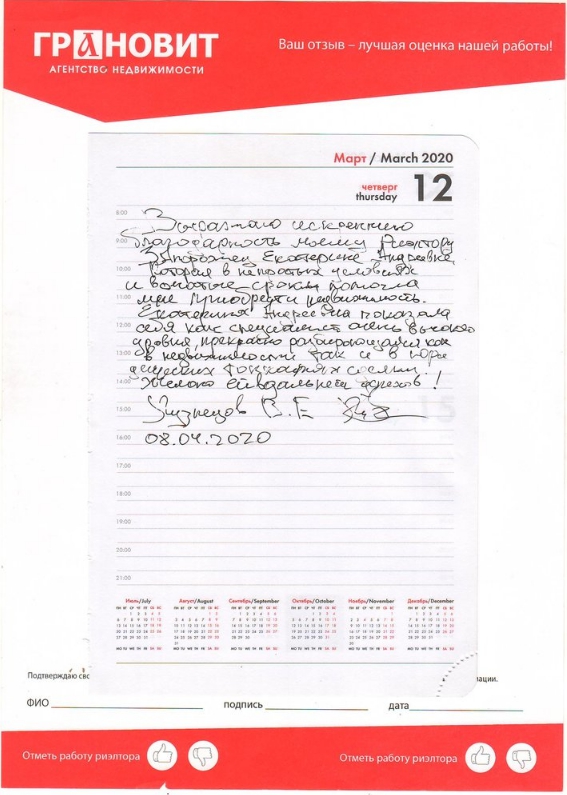 ГРАНОВИТ
АГЕНТСТВО НЕДВИЖИМОСТИ
Ваш отзыв – лучшая оценка нашей работы!
Март / March 2020
четверг
thursday
12
8:00
9:00
10:00
11:00
12:00
13:00
14:00
15:00
16:00
17:00
18:00
19:00
20:00
21:00
Выражаю искреннюю
благодарность моему Риэлтору
Запорожец Екатерине Андреевне,
которая в непростых условиях
и сроки помогла
мне приобрести недвижимость.
Екатерина Андреевна показала
себя как специалист очень высокого
уровня, прекрасно разбирающийся как
в недвижимости так и в юри
дических тонкостях
Желаю ей в дальнейшем успехов!
Кузнецов В.Е
08.04.2020
Июль/July Август/August Сентябрь/September Октябрь/October Ноябрь/November Декабрь/December
Подтверждаю
ФИО подпись дата
Отметь работу риэлтора Отметь работу риэлтора